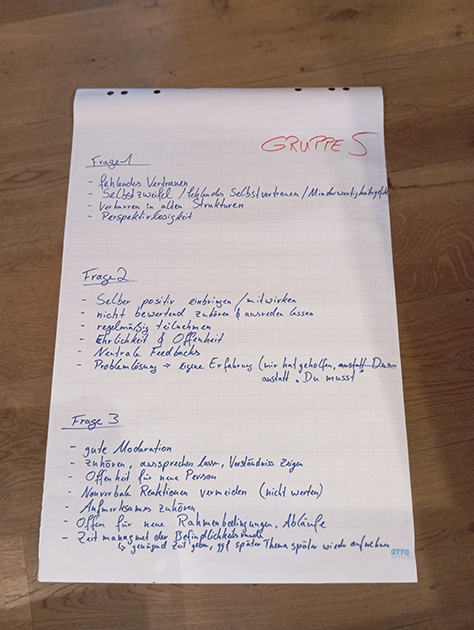 GRUPPE 5
Frage 1
- fehlendes Vertrauen
- Selbstzweifel / fehlendes Selbstvertrauen / Minderwertigkeitsgefühle
- Verharren in alten Strukturen
- Perspektivlosigkeit
Frage 2
- Selber positiv einbringen / mitwirken
- nicht bewertend zuhören & ausreden lassen
- regelmäßig teilnehmen
- Ehrlichkeit & Offenheit
- Neutrale Feedbacks
- Problemlösung → eigene Erfahrung (mir hat geholfen, anstatt Du
anstatt „Du musst"
Frage 3
- gute Moderation
- zuhören, aussprechen lassen, Verständniss zeigen
Offenheit für neue Person
- Nonverbale Reaktionen vermeiden (nicht werten)
- Aufmerksames zuhören
- Offen für neue Rahmenbedingungen, Abläufe
- Zeit managmet der Befindlichkeitsrunde
↳ genügend Zeit geben, ggf. später Thema später wieder aufnehmen
OTTO